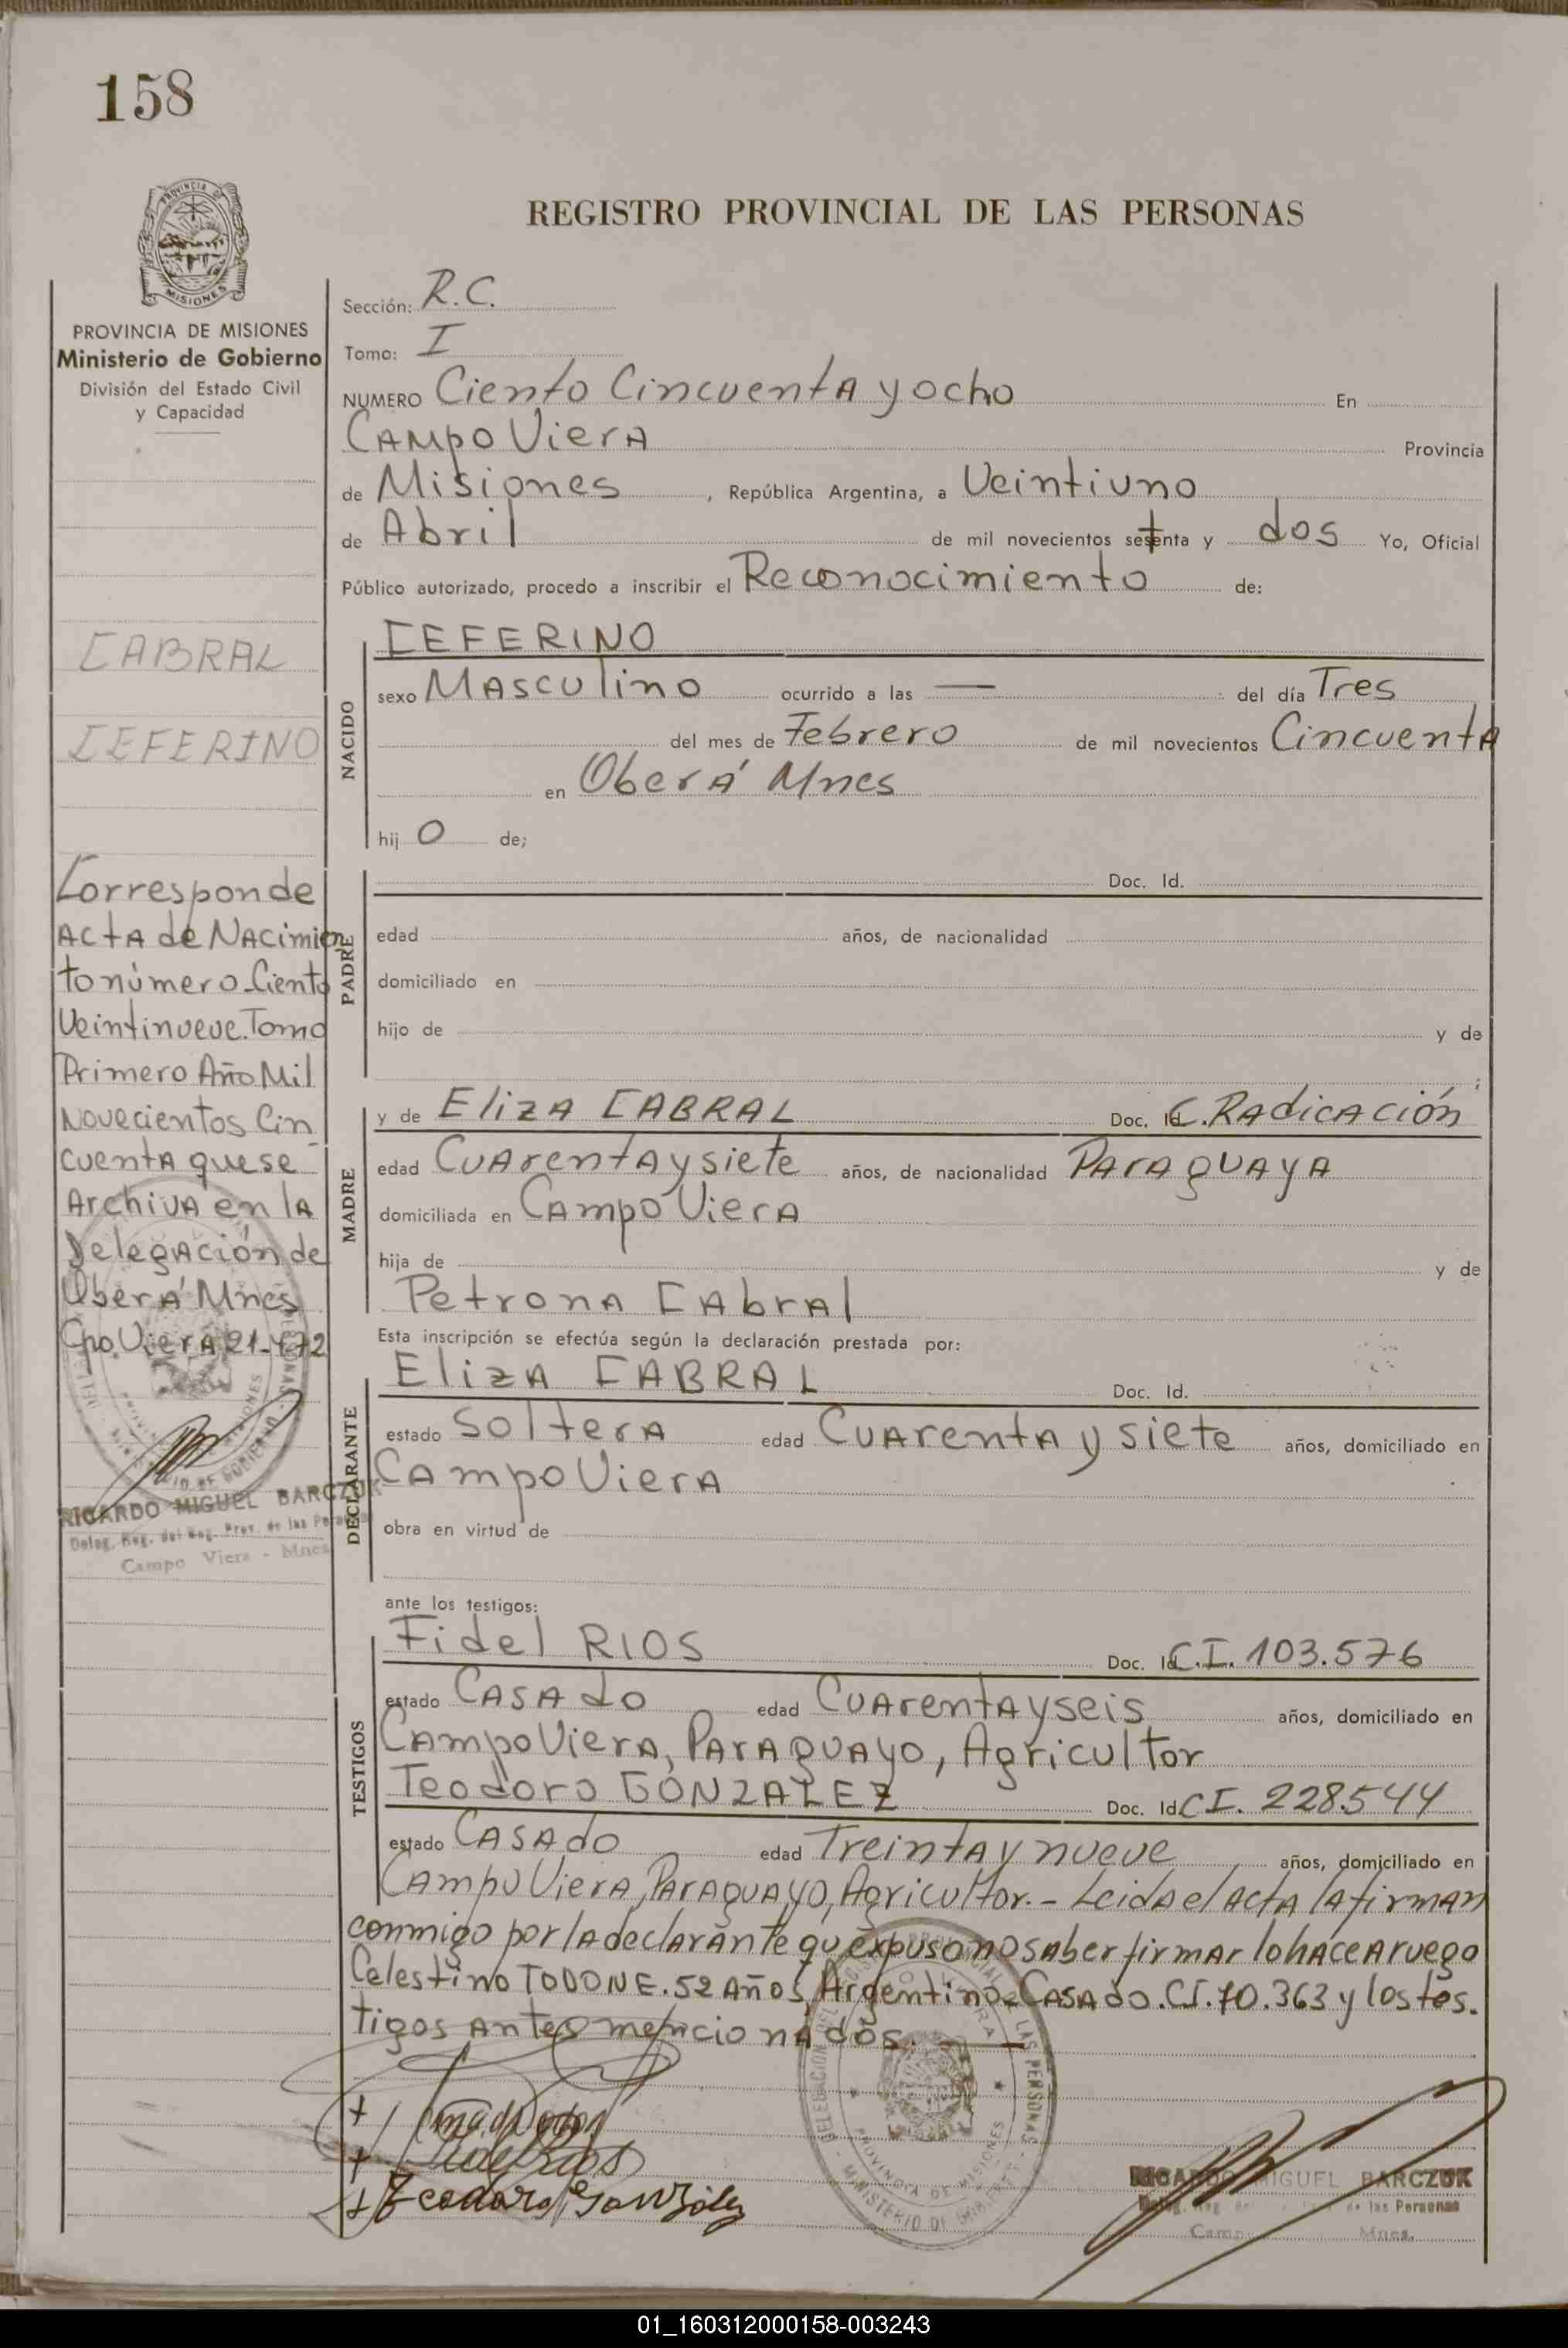 158
PROVINCIA DE MISIONES
Ministerio de Gobierno
División del Estado Civil
y Capacidad
CABRAL
CEFERINO
Corresponde
Acta de Nacimien
to número Ciento
Veintinueve. Tomo
Primero Año Mil
Novecientos Cin
cuenta que se
Archiva en la
Delegación de
Oberá Mnes
Cpo. Viera 21-4-72
RICARDO MIGUEL BARCZUK
Campo Viera - Mnes
REGISTRO PROVINCIAL DE LAS PERSONAS
Sección: R.C.
Tomo: I
NUMERO Ciento Cincuenta y ocho En
Campo Viera Provincia
de Misiones, República Argentina, a Veintiuno
de Abril de mil novecientos setenta y dos Yo, Oficial
Público autorizado, procedo a inscribir el Reconocimiento de:
NACIDO
CEFERINO
sexo Masculino ocurrido a las — del día Tres
del mes de Febrero de mil novecientos Cincuenta
en Oberá Mnes
hij o de;
PADRE
Doc. Id.
edad años, de nacionalidad
domiciliado en
hijo de y de
;
MADRE
y de Eliza CABRAL Doc. Id. C. Radicación
edad Cuarenta y siete años, de nacionalidad Paraguaya
domiciliada en Campo Viera
hija de y de
Petrona Cabral
Esta inscripción se efectúa según la declaración prestada por:
DECLARANTE
Eliza CABRAL Doc. Id.
estado Soltera edad Cuarenta y siete años, domiciliado en
Campo Viera
obra en virtud de
ante los testigos:
TESTIGOS
Fidel RIOS Doc. Id. C.I. 103.576
estado Casado edad Cuarenta y seis años, domiciliado en
Campo Viera, Paraguayo, Agricultor
Teodoro GONZALEZ Doc. Id. C.I. 228.544
estado Casado edad Treinta y nueve años, domiciliado en
Campo Viera, Paraguayo, Agricultor.- Leida el acta la firman
conmigo por la declarante qu expuso no saber firmar lo hace a ruego
Celestino TODONE. 52 Años, Argentino Casado. C.I. 10.363 y los tes.
tigos antes mencionados.
Fidel Rios
Teodoro González
DELEGACION DEL REGISTRO PROVINCIAL DE LAS PERSONAS
PROVINCIA DE MISIONES
MINISTERIO DE GOBIERNO
RICARDO MIGUEL BARCZUK
de las Personas
Mnes.
01_160312000158-003243